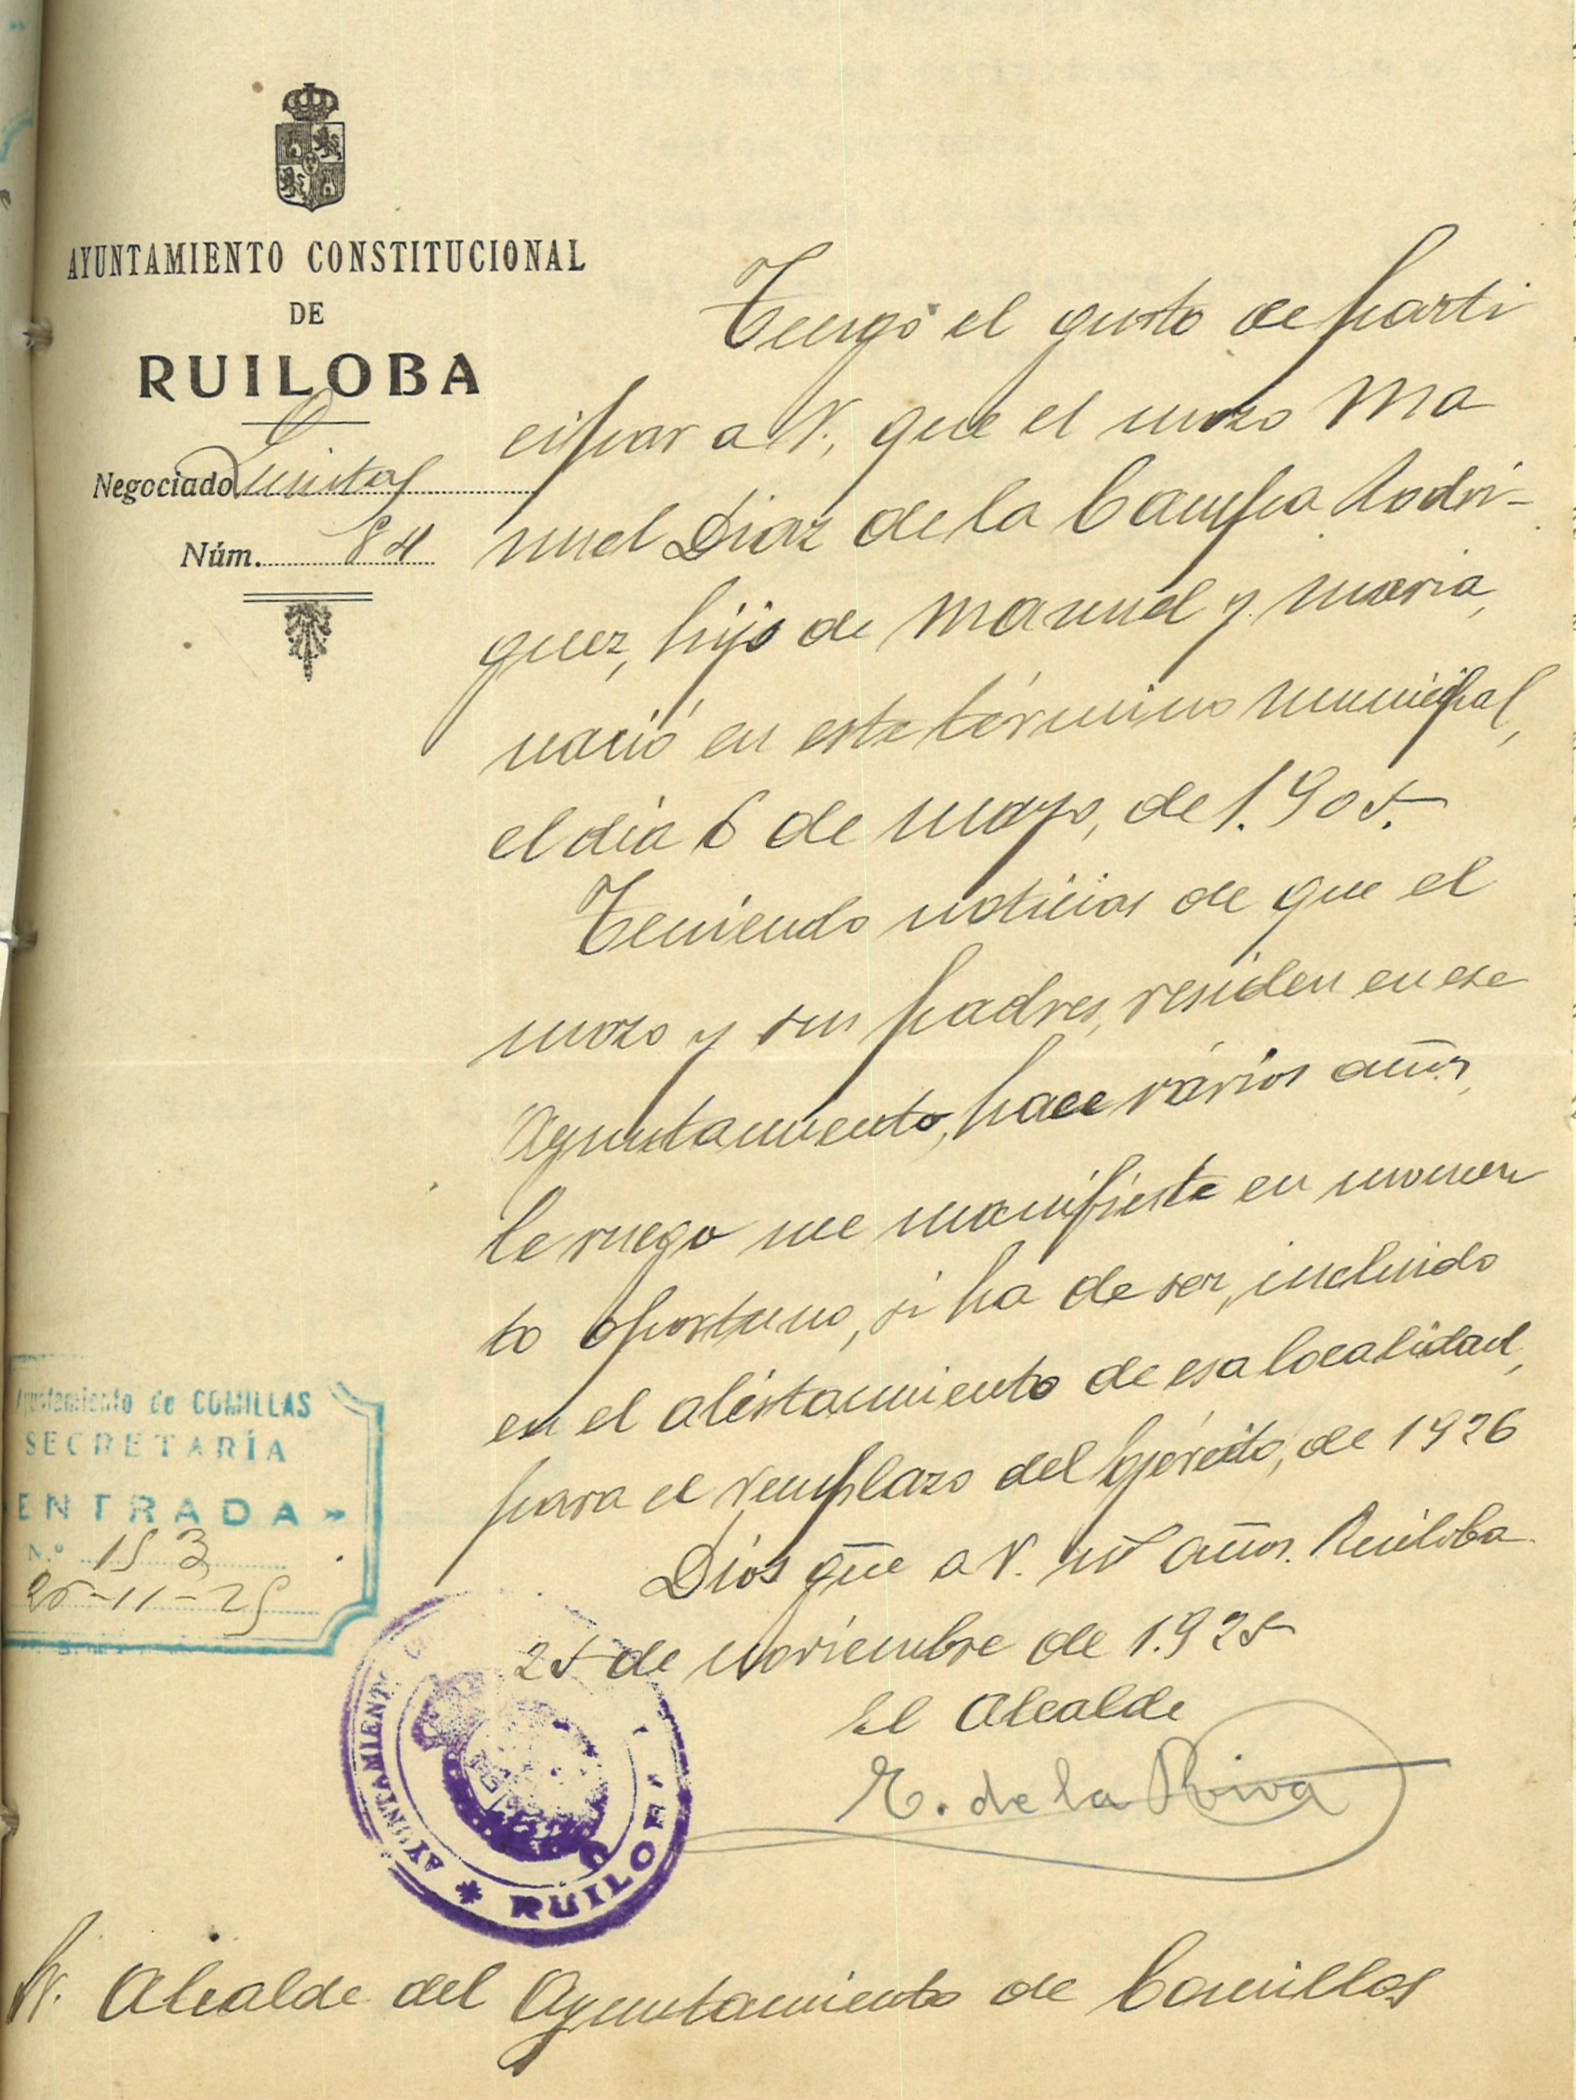 AYUNTAMIENTO CONSTITUCIONAL
DE
RUILOBA
Negociado Quintas
Núm. 84
Tengo el gusto de parti
cipar a V., que el mozo Ma
nuel Diaz de la Campa Rodri-
guez, hijo de Manuel y Maria,
nació en este término municipal,
el dia 6 de mayo, de 1.905.
Teniendo noticias de que el
mozo y sus padres, residen en ese
Ayuntamiento, hace vários años,
le ruego me manifieste en momen
to oportuno, si ha de ser, incluido
en el alistamiento de esa localidad,
para el remplazo del Ejército, de 1926
Dios gūe a V. ms años. Ruiloba
25 de noviembre de 1.925
El Alcalde
E. de la Riva
Ayuntamiento de COMILLAS
SECRETARÍA
ENTRADA
N.º 153
26-11-25
AYUNTAMIENTO
RUILOBA
Sr. Alcalde del Ayuntamiento de Comillas